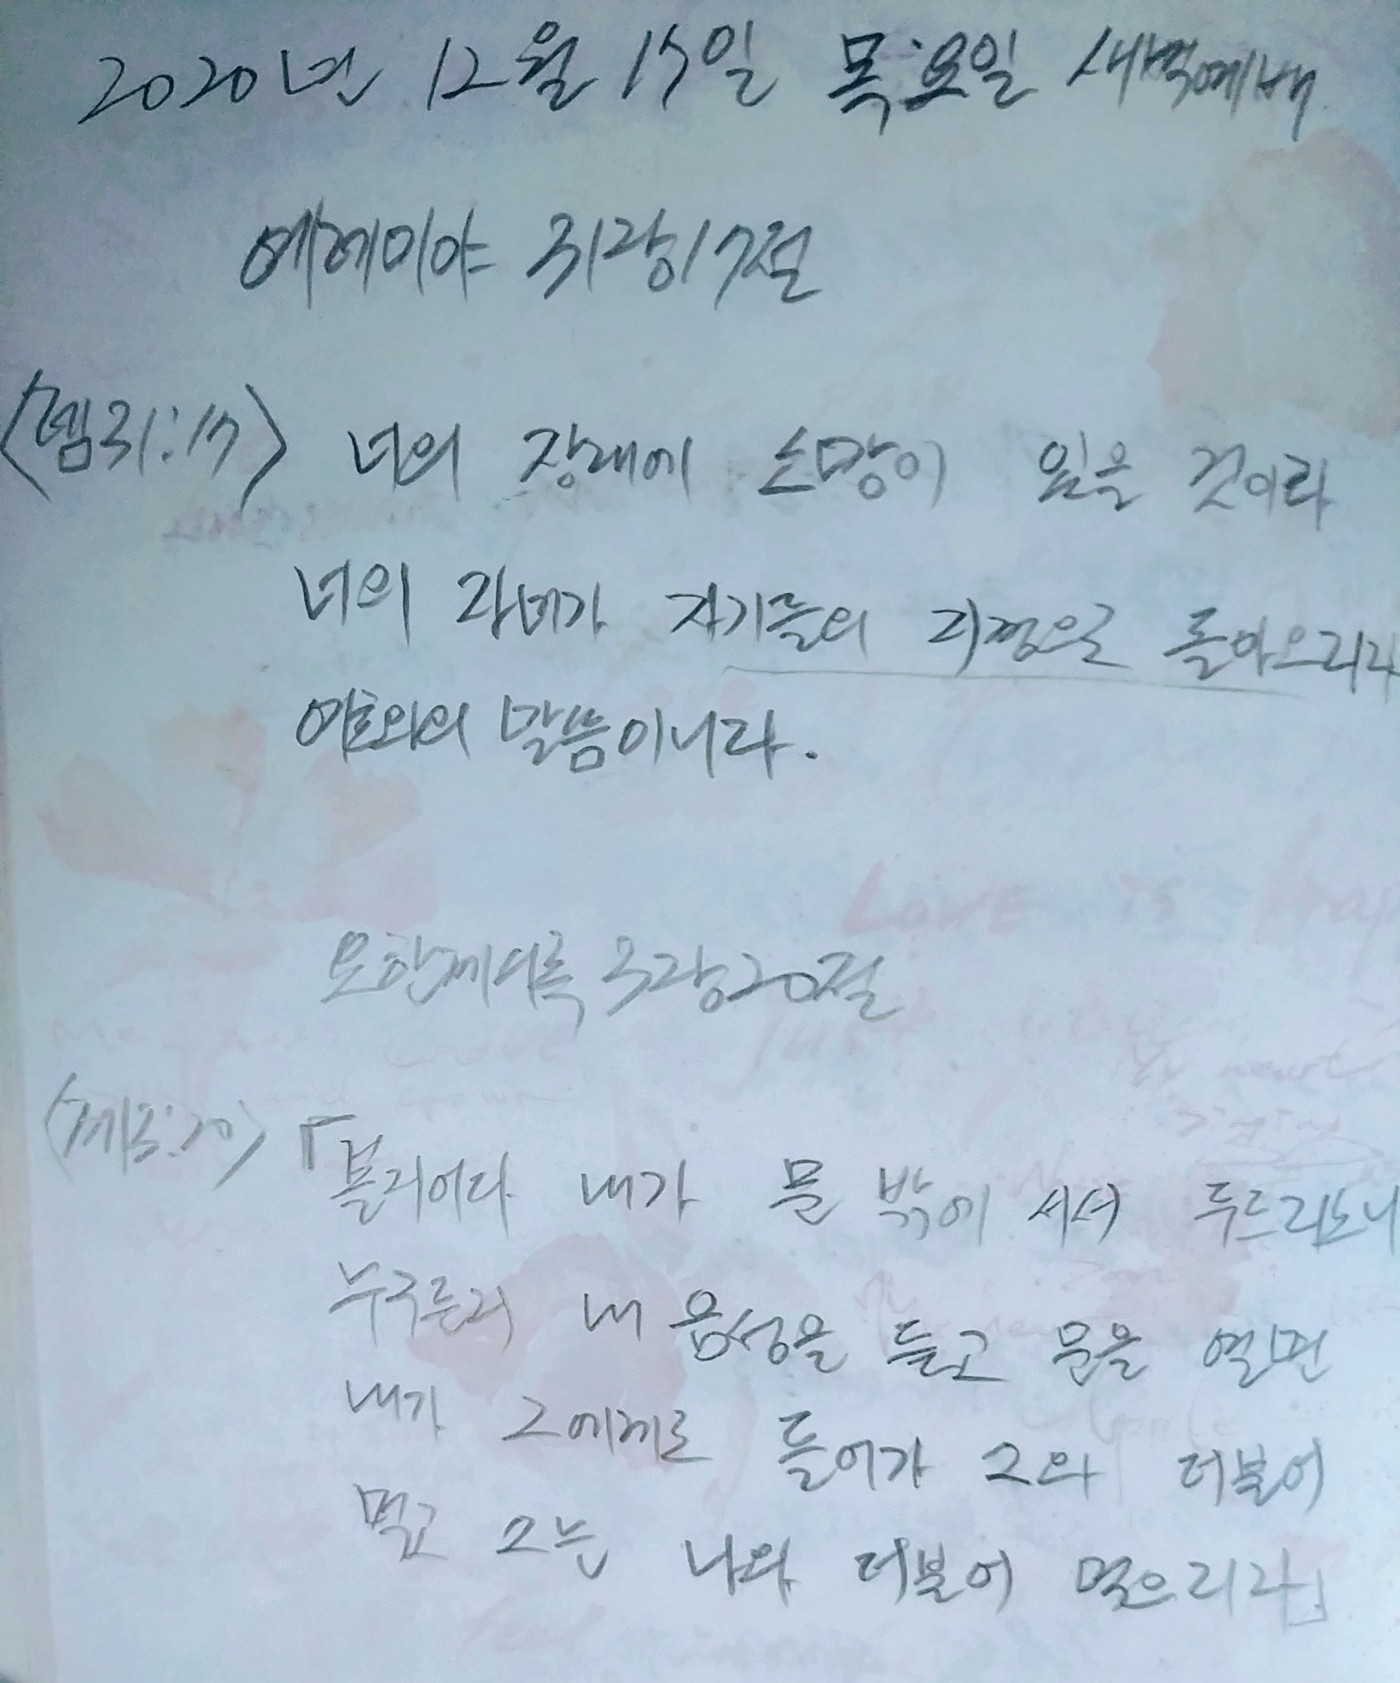 2020년 12월 17일 목요일 새벽예배
예레미야 31장 17절
<렘31:17> 너의 장래에 소망이 있을 것이라
너의 자녀가 자기들의 지경으로 돌아오리라
여호와의 말씀이니라.
요한계시록 3장 20절
<계3:20> 「볼지어다 내가 문 밖에 서서 두드리노니
누구든지 내 음성을 듣고 문을 열면
내가 그에게로 들어가 그와 더불어
먹고 그는 나와 더불어 먹으리라」